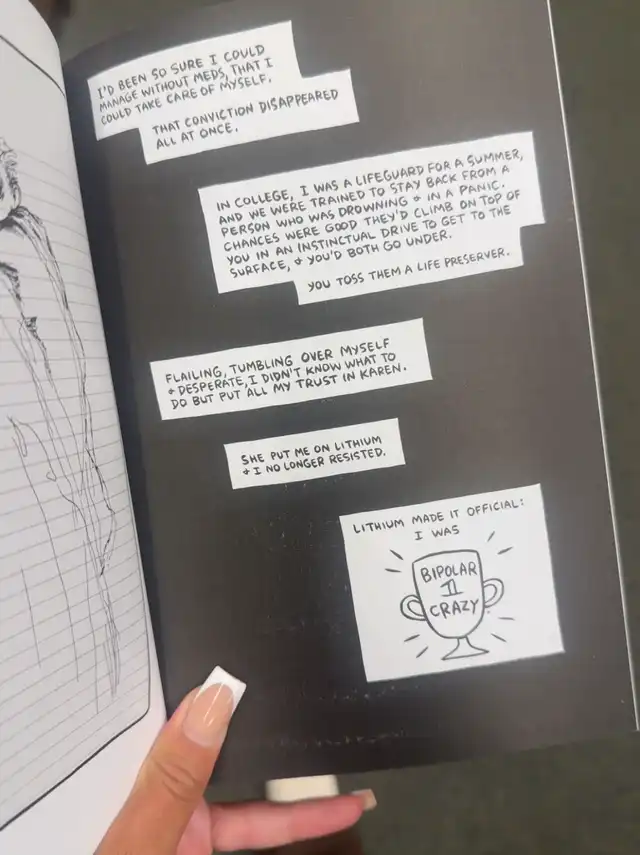 I'D BEEN SO SURE I COULD
MANAGE WITHOUT MEDS, THAT I
COULD TAKE CARE OF MYSELF.
THAT CONVICTION DISAPPEARED
ALL AT ONCE.
IN COLLEGE, I WAS A LIFEGUARD FOR A SUMMER,
AND WE WERE TRAINED TO STAY BACK FROM A
PERSON WHO WAS DROWNING & IN A PANIC.
CHANCES WERE GOOD THEY'D CLIMB ON TOP OF
YOU IN AN INSTINCTUAL DRIVE TO GET TO THE
SURFACE, & YOU'D BOTH GO UNDER.
YOU TOSS THEM A LIFE PRESERVER.
FLAILING, TUMBLING OVER MYSELF
& DESPERATE, I DIDN'T KNOW WHAT TO
DO BUT PUT ALL MY TRUST IN KAREN.
SHE PUT ME ON LITHIUM
& I NO LONGER RESISTED.
LITHIUM MADE IT OFFICIAL:
I WAS
BIPOLAR
1
CRAZY